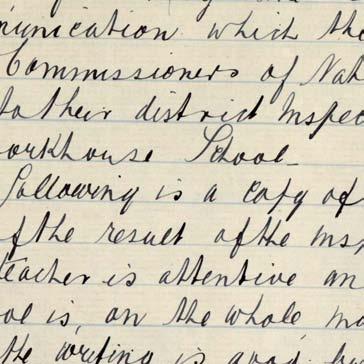 munication which the
Commissioners of Nat
to their district Inspec
orkhouse School
Following is a copy of
f the result of the Ins
teacher is attentive an
ol is, on the whole, mo
the writing is good, bu